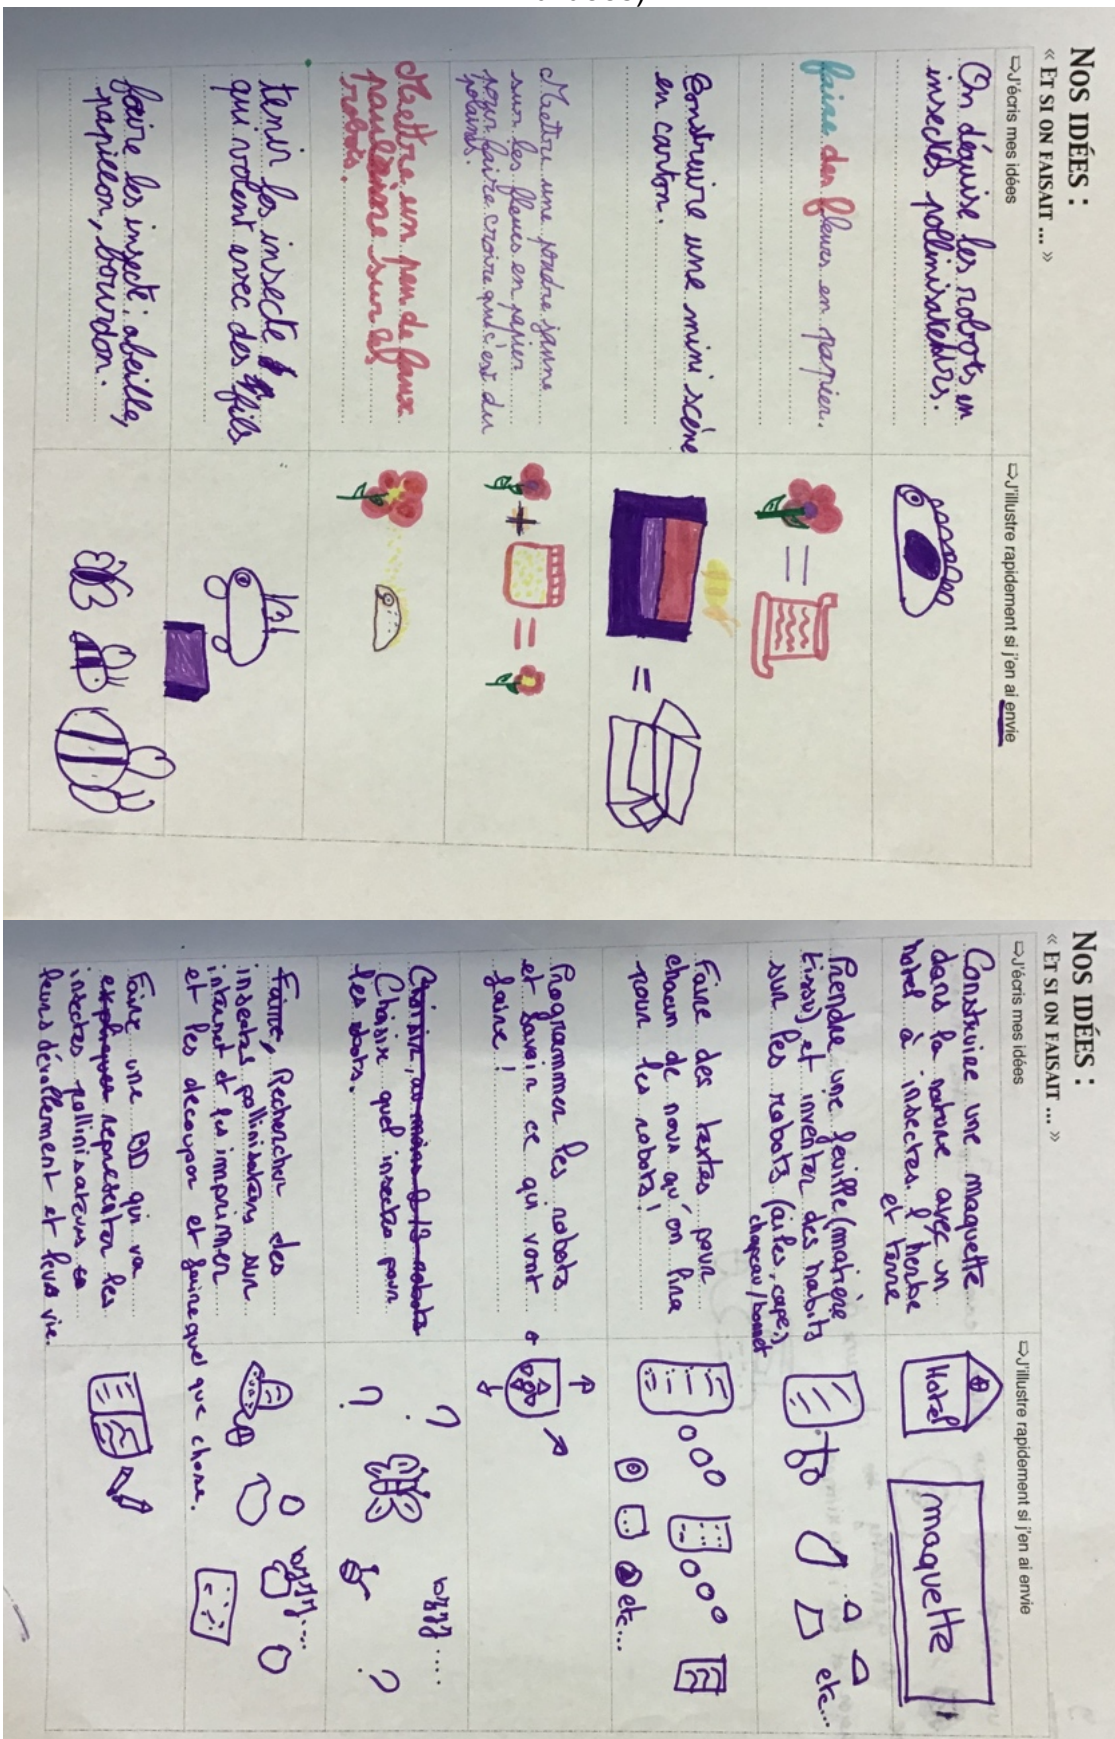 NOS IDÉES :
« ET SI ON FAISAIT ... »
⇨J'écris mes idées
⇨J'illustre rapidement si j'en ai envie
On déguise les robots en
insectes pollinisateurs.
faire des fleurs en papier.
Construire une mini scène
en carton.
Mettre une poudre jaune
sur les fleurs en papier
pour faire croire que c'est du
Mettre un peu de faux
sur les
robots.
tenir les insecte
qui volent avec des fils
faire les insecte : abeille,
papillon, bourdon.
NOS IDÉES :
« ET SI ON FAISAIT ... »
⇨J'écris mes idées
⇨J'illustre rapidement si j'en ai envie
Construire une maquette
dans la nature avec un
hotel à insectes, l'herbe
et terre
Hotel
maquette
Prendre une feuille (matière
tissu) et inventer des habits
sur les robots (ailes, cape,)
chapeau/bonnet
etc...
Faire des textes pour
chacun de nous qu'on lira
pour les robots !
etc...
Programmer les robots
et savoir ce qui vont
faire !
Choisir, au moins 8/9 robots
Choisir quel insectes pour
les robots.
? ? ?
bzzz....
Faire, Rechercher des
insectes pollinisateurs sur
internet et les imprimer
et les découper et faire quel que chose.
bzzz....
Faire une BD qui va
expliquer représenter les
insectes pollinisateurs
leurs dévellement et leurs vie.